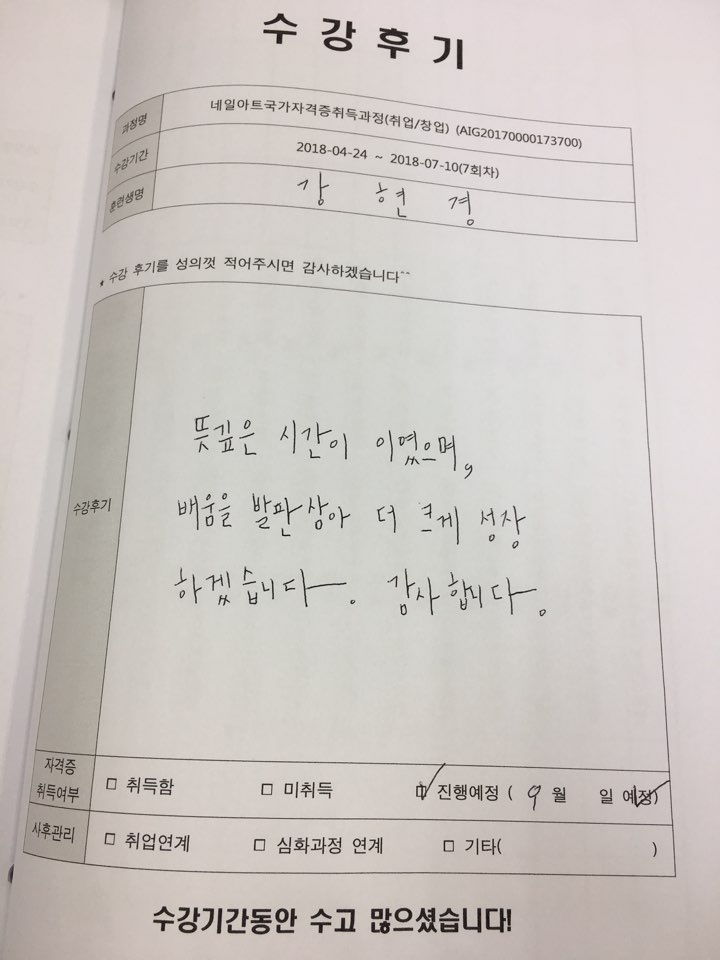 수강후기
과정명 네일아트국가자격증취득과정(취업/창업) (AIG20170000173700)
수강기간 2018-04-24 ~ 2018-07-10(7회차)
훈련생명 강 현 경
* 수강 후기를 성의껏 적어주시면 감사하겠습니다^^
수강후기
뜻깊은 시간이 이였으며,
배움을 발판삼아 더 크게 성장
하겠습니다. 감사합니다.
자격증
취득여부 □ 취득함 □ 미취득 ☑ 진행예정 ( 9 월 일 예정)
사후관리 □ 취업연계 □ 심화과정 연계 □ 기타( )
수강기간동안 수고 많으셨습니다!